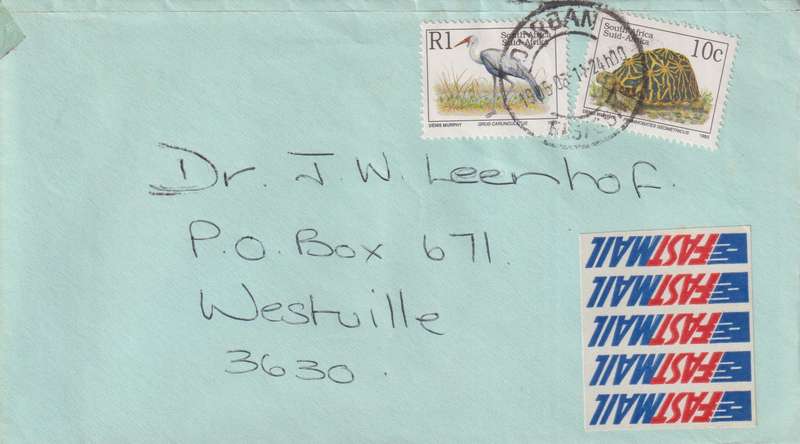 R1
South Africa
Suid-Afrika
DENIS MURPHY GRUS CARUNCULATUS
DURBAN
South Africa
Suid-Afrika
10c
GEOMETRICUS 1993
Dr. J.W. Leenhof.
P.O. Box 671.
Westville
3630.
FASTMAIL
FASTMAIL
FASTMAIL
FASTMAIL
FASTMAIL